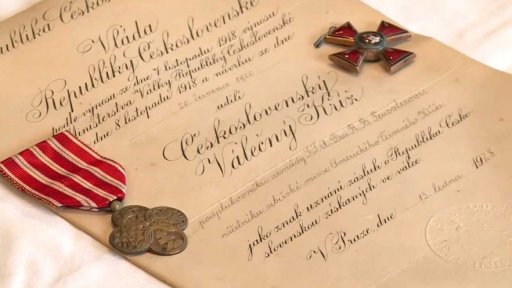 Republika Česko
Vláda
Republiky Československé
podle výnosu ze dne 7 listopadu 1918 výnosu
Ministerstva Války Republiky Československé
dne 8 listopadu 1918 a návrhu ze dne
26 červenec 1920
udílí
Československý
Válečný Kříž
podplukovníku
náčelníku mise Amerického Červeného Kříže
jako znak uznání zásluh o Republiku Česko-
slovenskou získaných ve válce
V Praze, dne 13 ledna 1923